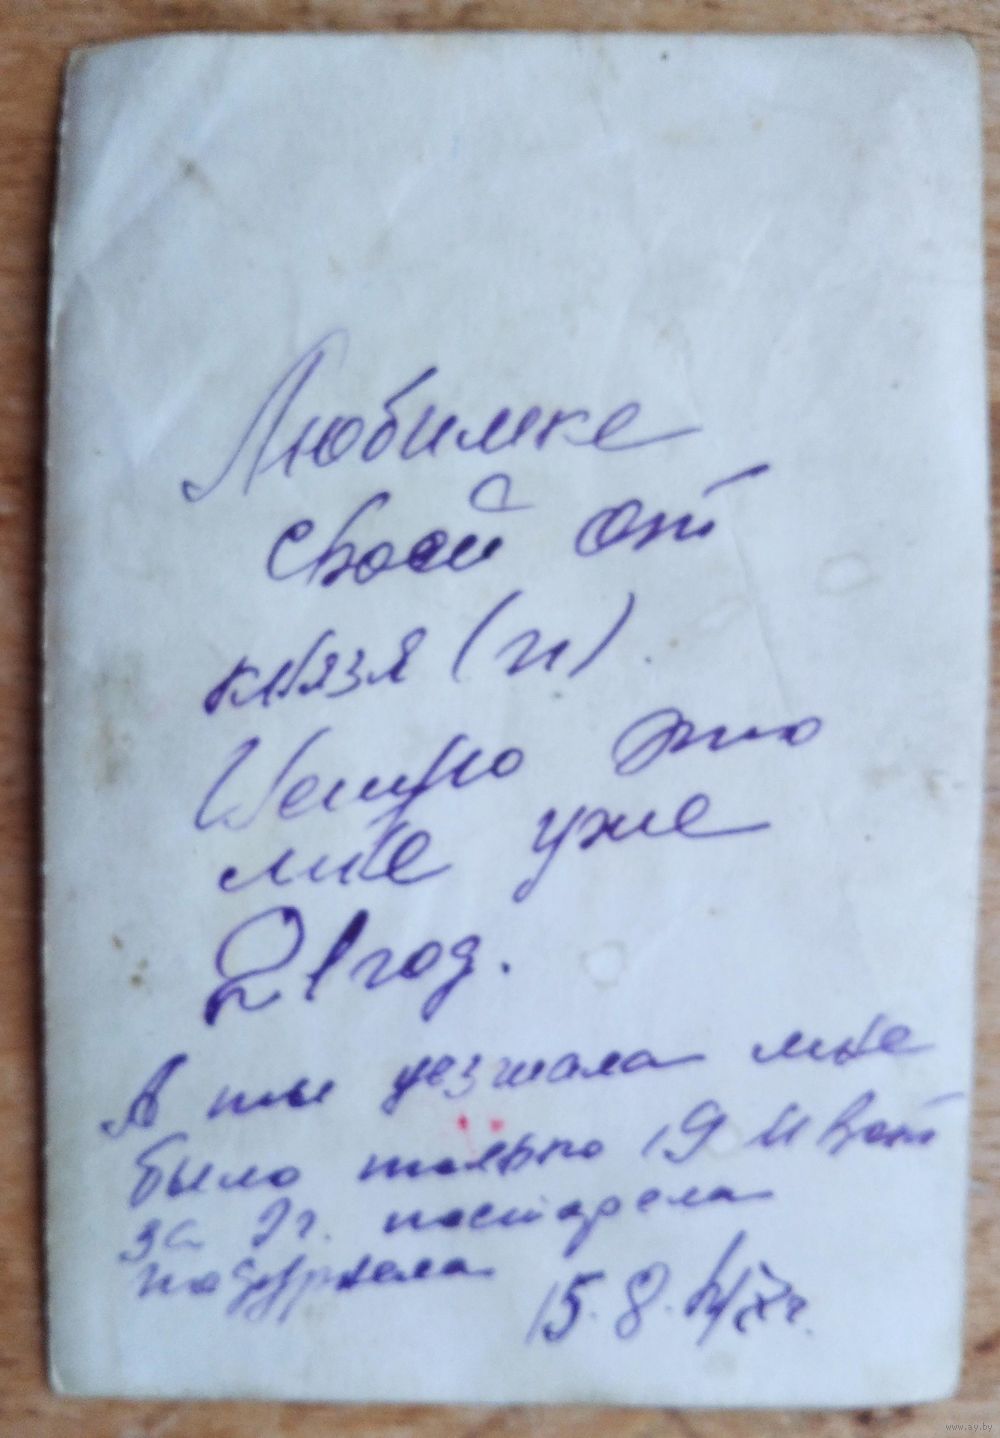 Любимке
своей от
князя (и).
это
мне уже
21 год.
А ты уезжала мне
было только 19 и вот
за 2г. постарела
подурнела
15.8.
www.ay.by